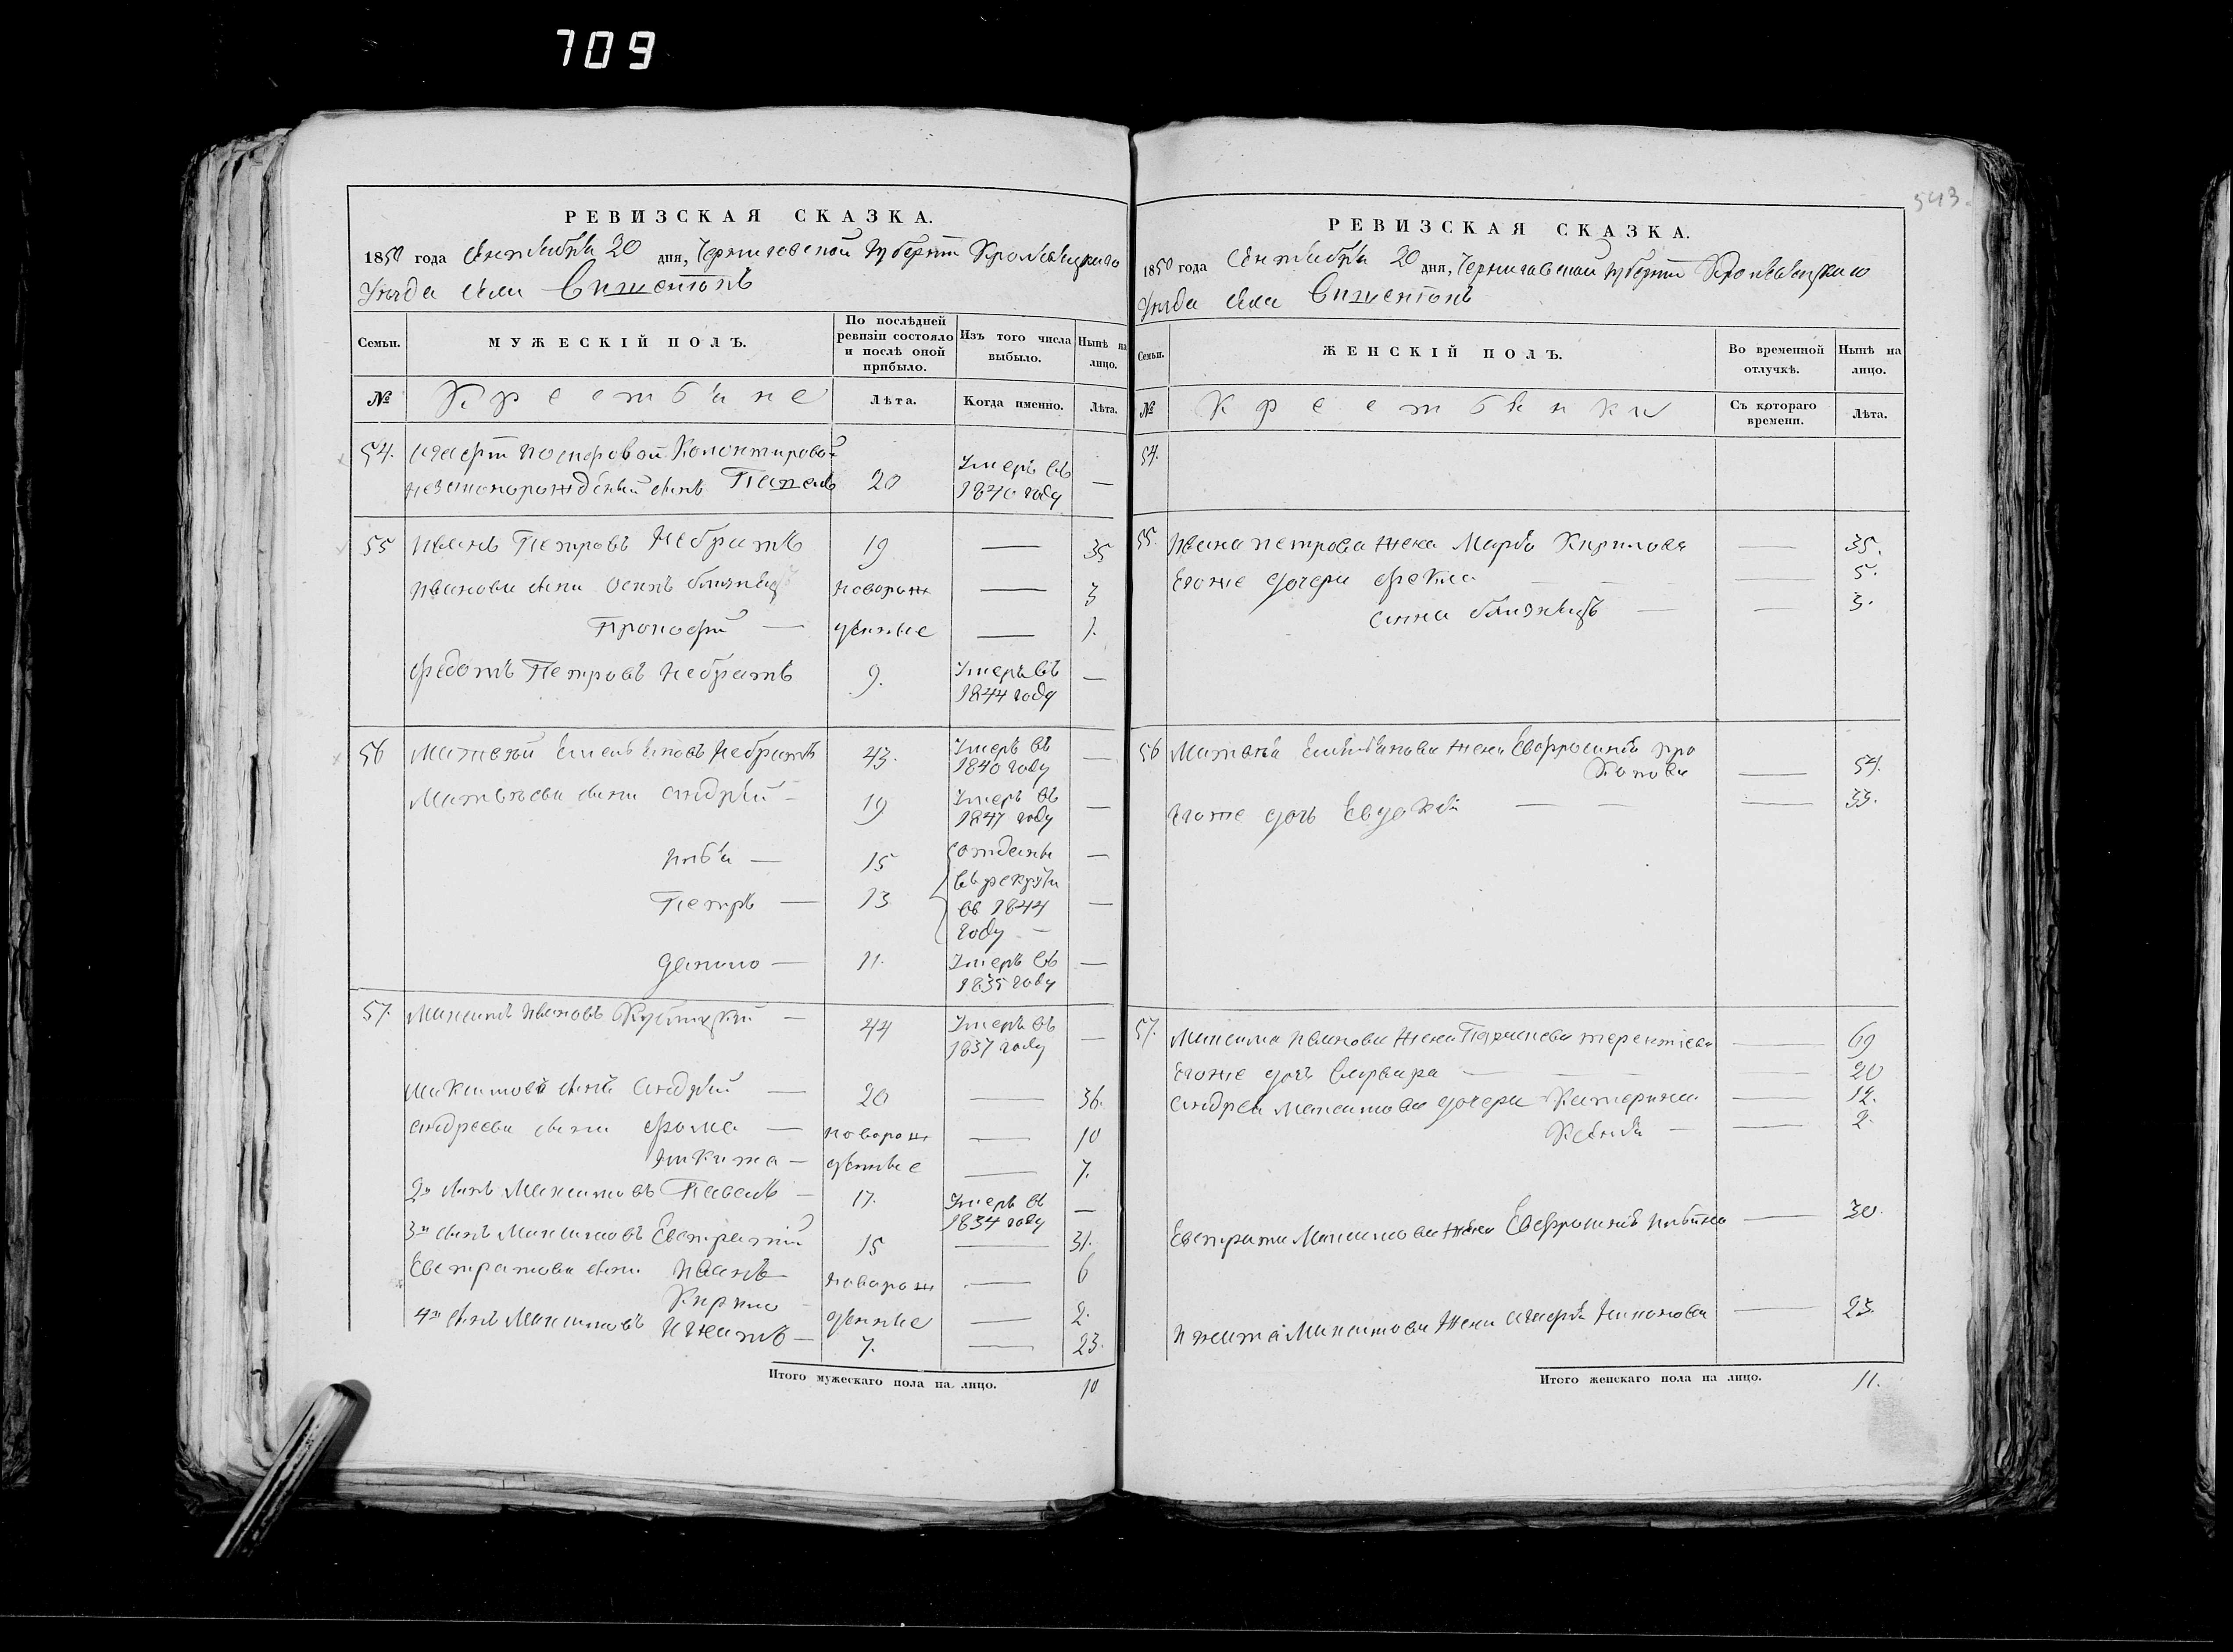 709
543.
РЕВИЗСКАЯ СКАЗКА.
1850 года Сентября 20 дня, Черниговской Губернии Кролевецкаго
Уезда Села
Семьи. МУЖЕСКІЙ ПОЛЪ. По послѣдней ревизіи состояло и послѣ оной прибыло. Изъ того числа выбыло. Нынѣ на лицо.
№ Крестьяне Лѣта. Когда именно. Лѣта.
54.
незаконорожденый сынъ 20 Умеръ въ 1840 году —
55 Иванъ Петровъ Небратъ 19 — 35
Ивановы сыны Осипъ близнецъ новорож — 3
Прокофій — денные — 1.
Федотъ Петровъ Небратъ 9. Умеръ въ 1844 году —
56 Матвей Емельяновъ Небратъ 43. Умеръ въ 1840 году —
Матвеевы сыны Андрей — 19 Умеръ въ 1847 году —
Илья — 15 отданы —
Петръ — 13 въ рекруты въ 1844 году — —
Данило — 11. Умеръ въ 1835 году —
57. Максимъ Ивановъ — 44 Умеръ въ 1837 году —
Максимовъ сынъ Андрей — 20 — 36.
Андреевы сыны Фома — новорож — 10
Никита — денные — 7.
2й сынъ Максимовъ Павелъ — 17. Умеръ въ 1834 году —
3й сынъ Максимовъ Евстратій 15 — 31.
Евстратовы сыны Иванъ — новорож — 6
Кирило — денные — 2.
4й сынъ Максимовъ Игнатъ — 7. — 23.
Итого мужескаго пола на лицо. 10
РЕВИЗСКАЯ СКАЗКА.
1850 года Сентября 20 дня, Черниговской Губернии Кролевецкаго
Уезда Села
Семьи. ЖЕНСКІЙ ПОЛЪ. Во временной отлучкѣ. Нынѣ на лицо.
№ Крестьянки Съ котораго времени. Лѣта.
54.
55. Ивана Петрова жена Марья Кирилова — 35.
Егоже дочери Фекла — — — 5.
Анна близнецъ — — 3.
56 Матвея Емельянова жена Евфросинья Про
копова — 54.
Егоже дочь Евдокія — — — 33.
57. Максима Иванова жена Терентіева — 69
Егоже дочь Варвара — — — 20
Андрея Максимова дочери Катерина — 12.
Ксенія — — 2.
Евстратія Максимова жена Евфросинія — 30.
Игната Максимова жена — 23.
Итого женскаго пола на лицо. 11.